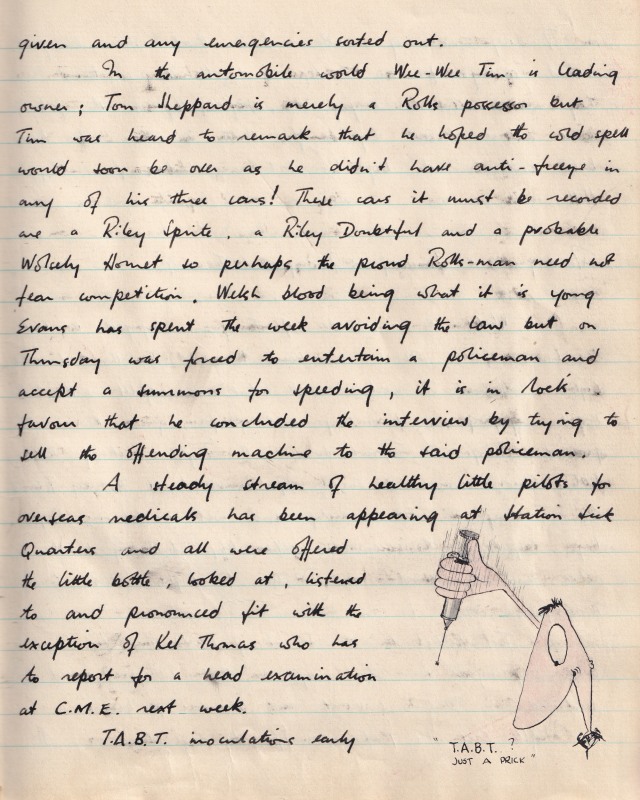 given and any emergencies sorted out.
In the automobile world Wee-Wee Tim is leading
owner; Tom Sheppard is merely a Rolls possessor but
Tim was heard to remark that he hoped the cold spell
would soon be over as he didn't have anti-freeze in
any of his three cars! These cars it must be recorded
are a Riley Sprite, a Riley Doubtful and a probable
Wolsely Hornet so perhaps the proud Rolls-man need not
fear competition. Welsh blood being what it is young
Evans has spent the week avoiding the law but on
Thursday was forced to entertain a policeman and
accept a summons for speeding, it is in
favour that he concluded the interview by trying to
sell the offending machine to the said policeman.
A steady stream of healthy little pilots for
overseas medicals has been appearing at Station Sick
Quarters and all were offered
the little bottle, looked at, listened
to and pronounced fit with the
exception of Kel Thomas who has
to report for a head examination
at C.M.E. next week.
T.A.B.T. inoculations early
"T.A.B.T.?
JUST A PRICK"